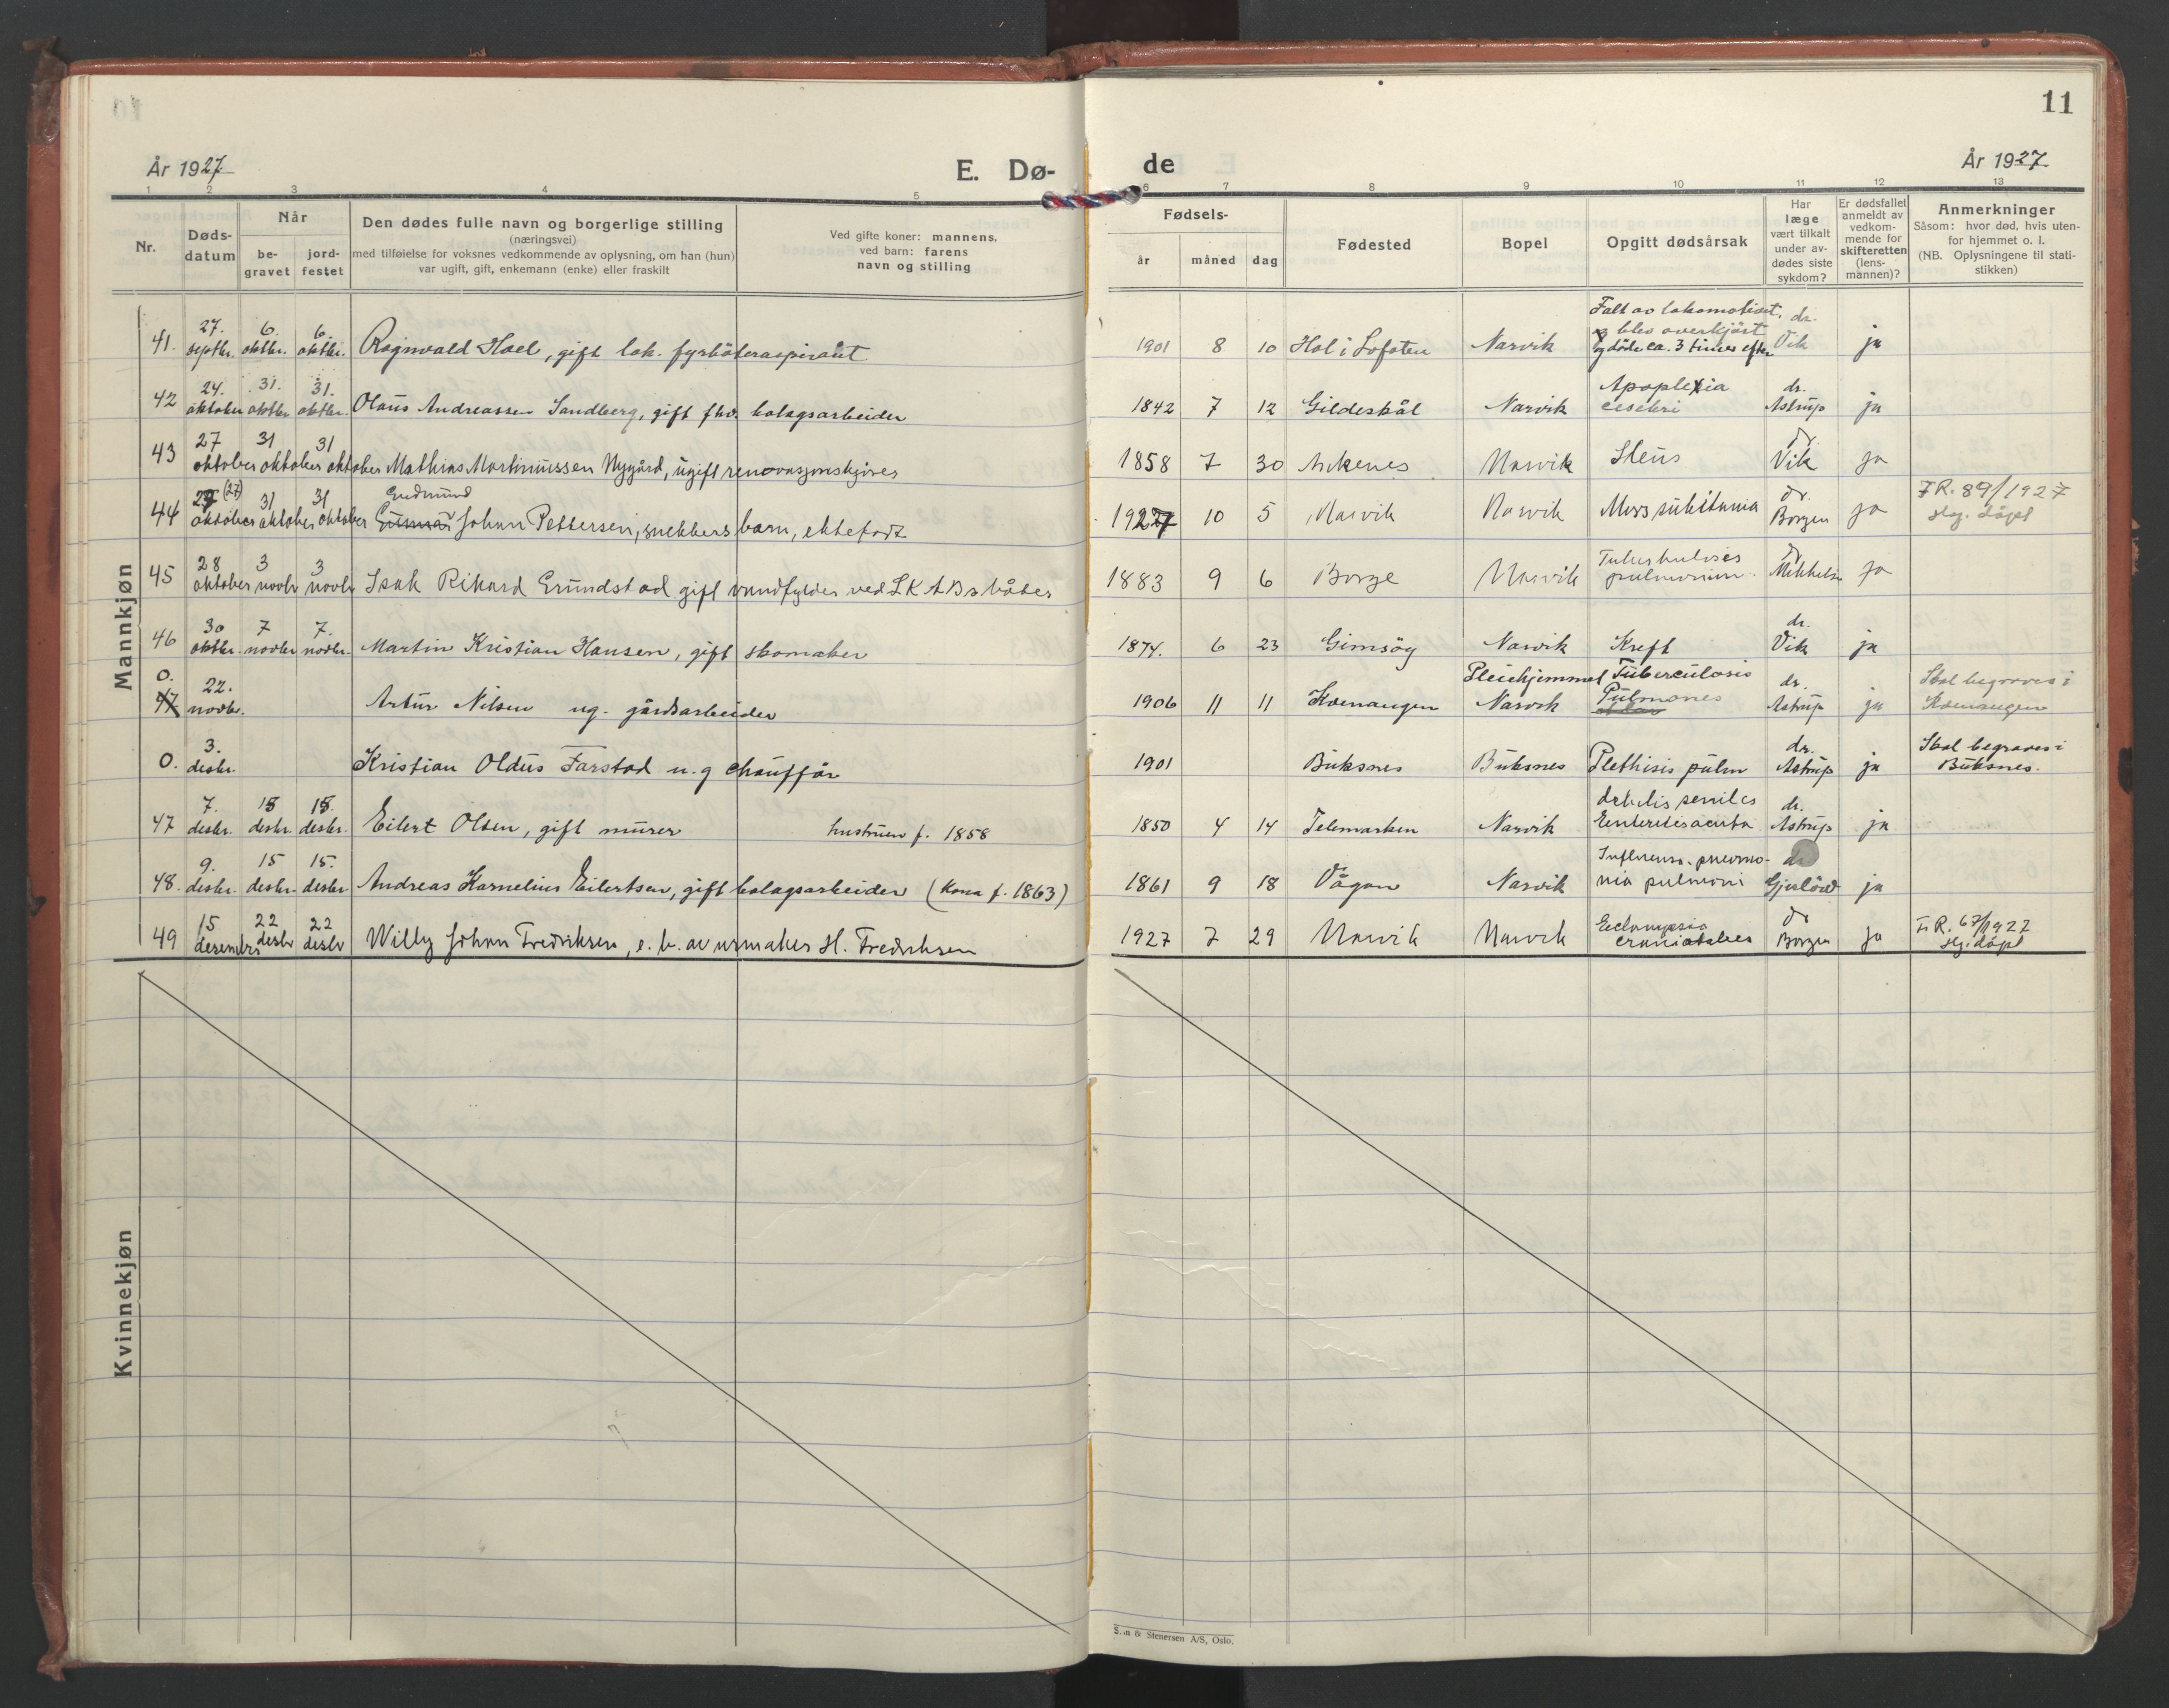 11
År 1927
E. Dø-
de
År 1927
1 2 3 4 5 6 7 8 9 10 11 12 13
Nr.
Døds-
datum
Når
be-
gravet
jord-
festet
Den dødes fulle navn og borgerlige stilling
(næringsvei)
med tilføielse for voksnes vedkommende av oplysning, om han (hun)
var ugift, gift, enkemann (enke) eller fraskilt
Ved gifte koner: mannens,
ved barn: farens
navn og stilling
Fødsels-
år måned dag
Fødested
Bopel
Opgitt dødsårsak
Har
læge
vært tilkalt
under av-
dødes siste
sykdom?
Er dødsfallet
anmeldt av
vedkom-
mende for
skifteretten
(lens-
mannen)?
Anmerkninger
Såsom: hvor død, hvis uten-
for hjemmet o. l.
(NB. Oplysningene til stati-
stikken)
Mannkjøn
41. 27. septbr. 6. oktbr. 6. oktbr. Ragnvald Hoel, gift lok. fyrböteraspirant 1901 8 10 Hol i Lofoten Narvik Falt av lokomotivet, og blev overkjört og döde ca. 3 timer efter dr. Vik ja
42 24. oktober 31. oktbr 31. oktbr. Olaus Andreassen Sandberg, gift fhv. bolagsarbeider 1842 7 12 Gildeskål Narvik Apoplexia cerebri dr. Astrup ja
43 27 oktober 31 oktober 31 oktober Mathias Martinussen Nygård, ugift renovasjonskjører 1858 7 30 Ankenes Narvik Ileus dr Vik ja
44 27 (27) oktober 31 oktober 31 oktober Gudmund Gunnar Johan Pettersen, snekkers barn, ektefødt 1927 10 5 Narvik Narvik Mors subitanea dr. Borgen ja FR. 89/1927 hj. døpt
45 28 oktober 3 novbr 3 novbr Isak Rikard Grundstad gift vandfylder ved LKABs båter 1883 9 6 Borge Narvik Tuberkulosis pulmonum. dr Mikkelsen ja
46 30 oktbr. 7 novbr 7. novbr. Martin Kristian Hansen, gift skomaker 1874. 6 23 Gimsöy Narvik Kreft dr. Vik ja
0. 47 22. novbr. Artur Nilsen ug. gårdsarbeider 1906 11 11 Kvenangen Pleiehjemmet Narvik Tuberculosis Pulmones dr. Astrup ja Skal begraves i Kvenangen
0. 3. desbr. Kristian Oldus Farstad u.g chaufför 1901 Buksnes Buksnes Pthisis pulm dr. Astrup ja Skal begraves i Buksnes.
47 7. desbr. 15 desbr. 15. desbr. Eilert Olsen, gift murer hustruen f. 1858 1850 4 14 Telemarken Narvik debilis seniles Enteritis acuta dr. Astrup ja
48. 9. desbr. 15 desbr. 15. desbr Andreas Kornelius Eilertsen, gift bolagsarbeider (kona f. 1863) 1861 9 18 Vågan Narvik Influensa-pneumonia pulmoni dr ja
49 15 desember 22 desbr 22 desbr Willy Johan Fredriksen, e. b. av urmaker H. Fredriksen 1927 7 29 Narvik Narvik Eclampsia dr Borgen ja F.R. 67/1927 hj. døpt
Kvinnekjøn
& Stenersen A/S, Oslo.